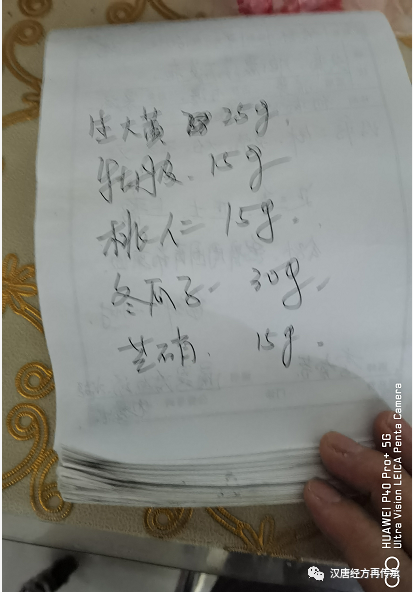 生大黄 25g.
牡丹皮. 15g
桃仁 15g.
冬瓜子. 30g.
芒硝. 15g.
HUAWEI P40 Pro+ 5G
Ultra Vision LEICA Penta Camera
汉唐经方再传承